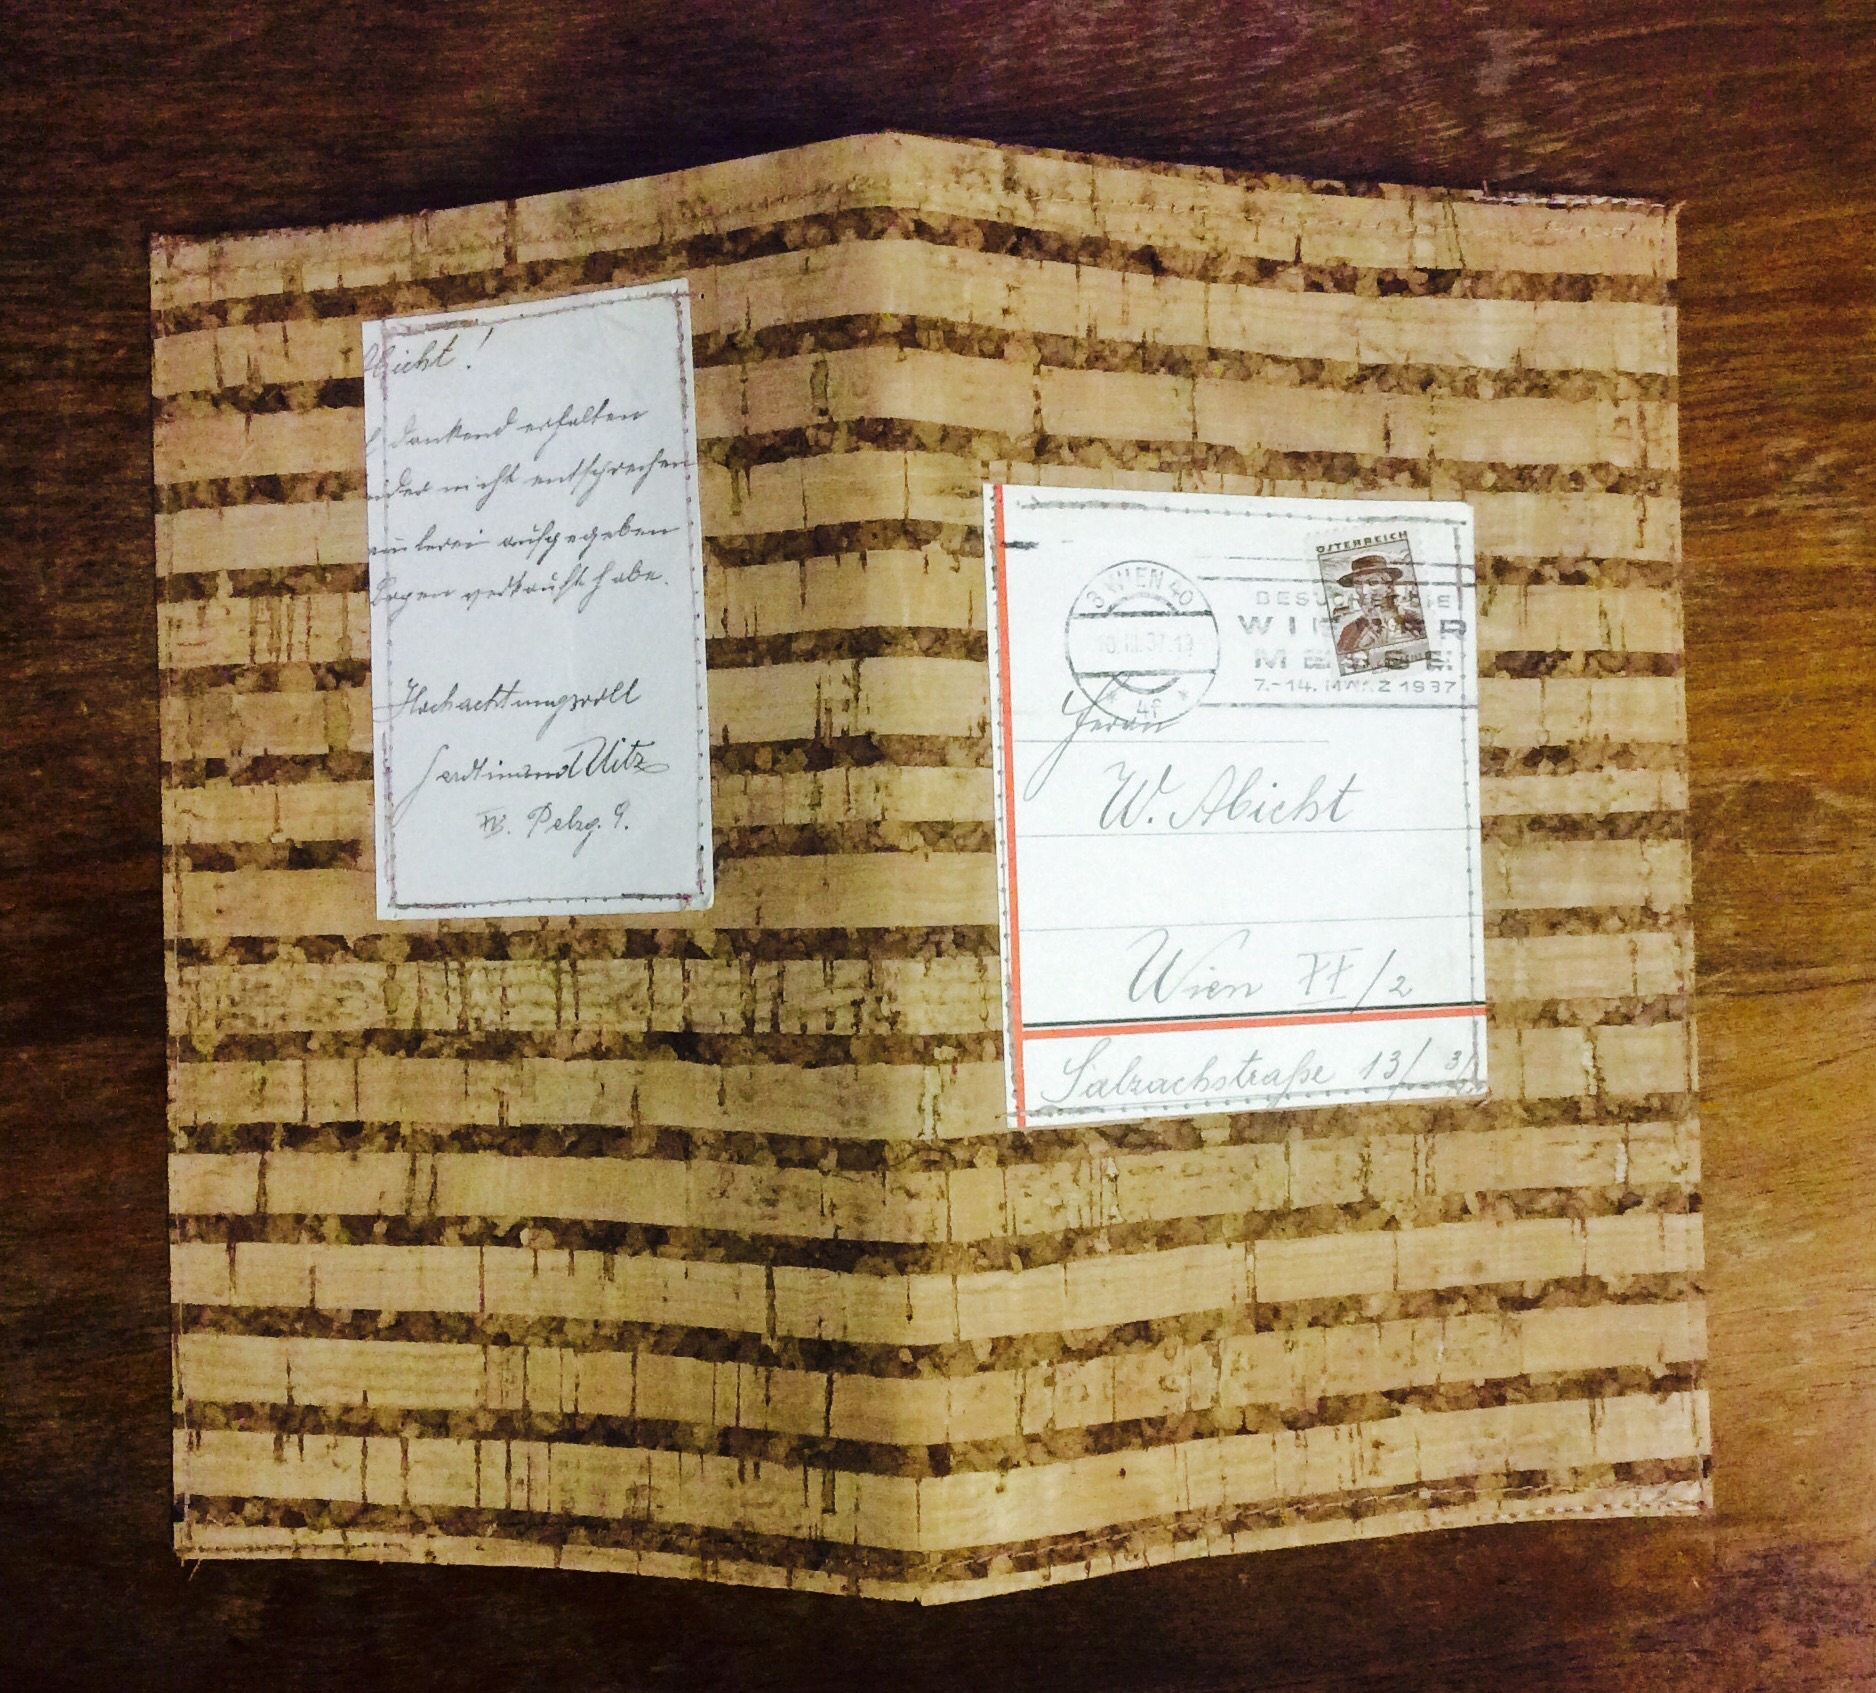 Abicht!
dankend erhalten
nicht entsprechen
aufgegeben
Bogen verkauft habe.
Hochachtungsvoll
Ferdinand Uitz
Pelzg. 9.
ÖSTERREICH
3 WIEN 40
10.III.37.19
4f
BESUCHET DIE
WIENER
MESSE
7.-14. MÄRZ 1937
Herrn
W. Abicht
Wien XX/2
Salzachstraße 13/3/